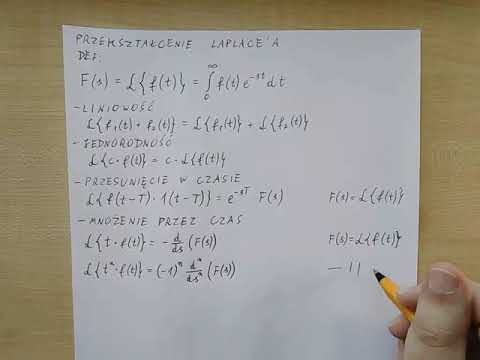 PRZEKSZTAŁCENIE LAPLACE'A
DEF:
F(s) = ℒ{f(t)} = ∫₀^∞ f(t) e^{-st} dt
- LINIOWOŚĆ
ℒ{f₁(t) + f₂(t)} = ℒ{f₁(t)} + ℒ{f₂(t)}
- JEDNORODNOŚĆ
ℒ{c · f(t)} = c · ℒ{f(t)}
- PRZESUNIĘCIE W CZASIE
ℒ{f(t-T) · 1(t-T)} = e^{-sT} F(s) F(s) = ℒ{f(t)}
- MNOŻENIE PRZEZ CZAS
ℒ{t · f(t)} = - d/ds (F(s)) F(s) = ℒ{f(t)}
ℒ{tⁿ · f(t)} = (-1)ⁿ dⁿ/dsⁿ (F(s)) — 11